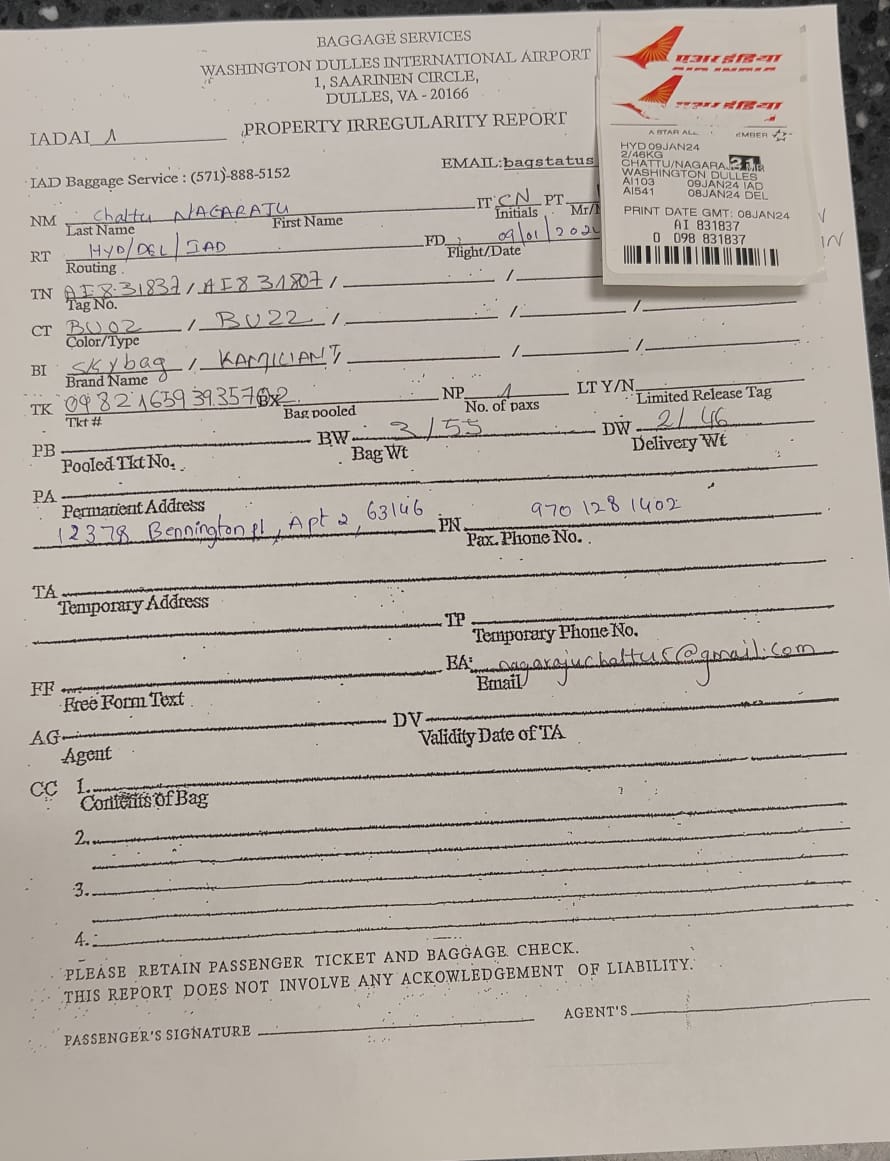 BAGGAGE SERVICES
WASHINGTON DULLES INTERNATIONAL AIRPORT
1, SAARINEN CIRCLE,
DULLES, VA - 20166
IADAI 1 PROPERTY IRREGULARITY REPORT
IAD Baggage Service : (571)-888-5152 EMAIL:bagstatus
एअर इंडिया
AIR INDIA
एअर इंडिया
A STAR ALL EMBER
HYD 09JAN24
2/46KG
CHATTU/NAGARA 21
WASHINGTON DULLES
AI103 09JAN24 IAD
AI541 08JAN24 DEL
PRINT DATE GMT: 08JAN24
AI 831837
0 098 831837
IN
NM Chattu NAGARAJU IT CN PT
Last Name First Name Initials Mr/
RT HYD/DEL/IAD FD 09/01/202
Routing Flight/Date
TN AI831837 / AI831807 / /
Tag No.
CT BU02 / BU22 / / /
Color/Type
BI Skybag / KAMILIANT / / /
Brand Name
TK NP 1 LT Y/N
Tkt # Bag pooled No. of paxs Limited Release Tag
PB BW 3/55 DW 2/46
Pooled Tkt No. Bag Wt Delivery Wt
PA
Permanent Address
12378 Bennington pl, Apt 2, 63146 PN 970 128 1402
Pax. Phone No.
TA
Temporary Address
TP
Temporary Phone No.
FF EA: nagarajuchattu5@gmail.com
Free Form Text Email
AG DV
Agent Validity Date of TA
CC 1.
Contents of Bag
2.
3.
4.
PLEASE RETAIN PASSENGER TICKET AND BAGGAGE CHECK.
THIS REPORT DOES NOT INVOLVE ANY ACKOWLEDGEMENT OF LIABILITY.
PASSENGER'S SIGNATURE AGENT'S